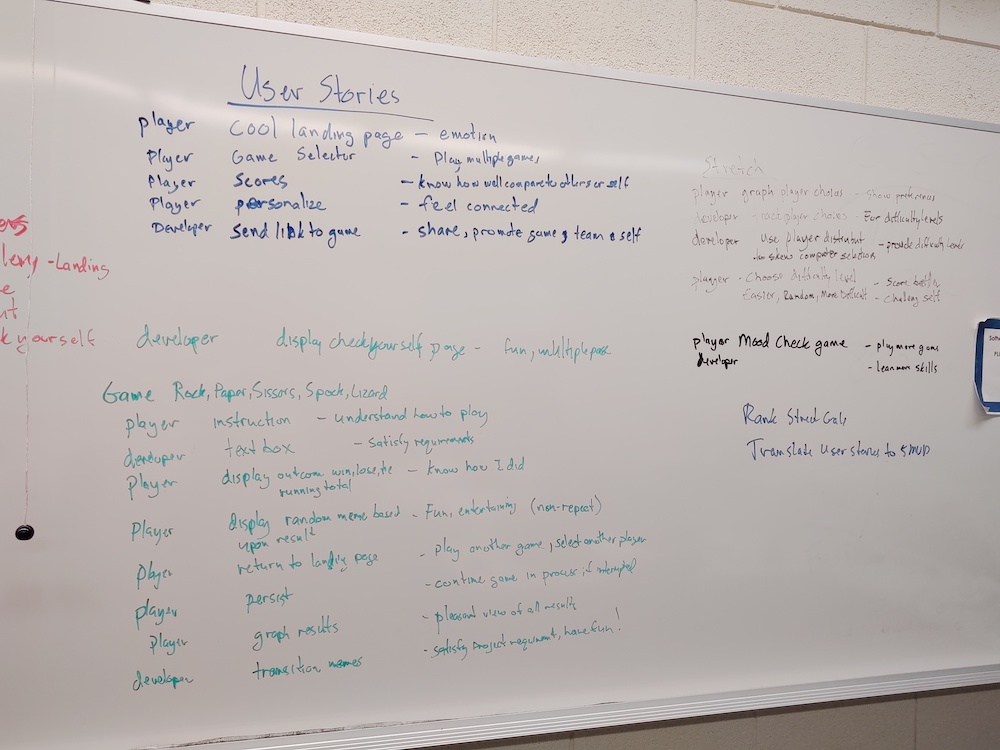 User Stories
player cool landing page - emotion
Player Game Selector - Play multiple games
Player Scores - know how well compare to others or self
Player personalize - feel connected
Developer Send link to game - share, promote game, team & self
-Landing
yourself
developer display check yourself page - fun, multiple page
Game Rock, Paper, Sissors, Spock, Lizard
player instruction - understand how to play
developer text box - Satisfy requirements
Player display outcome win, lose, tie - know how I did
running total
Player display random meme based - Fun, entertaining (non-repeat)
upon result
player return to landing page - play another game, select another player
player persist - continue game in process, if interrupted
player graph results - pleasant view of all results
developer transition memes - satisfy project requirment, have fun!
Stretch
player graph player choices - show preferences
developer player choices - For difficulty levels
developer use player - provide difficulty levels
skew computer selection
player - Choose difficulty level - Score better
Easier, Random, More Difficult - self
player Mood Check game - play more games
developer - learn more skills
Rank
Translate User stories to